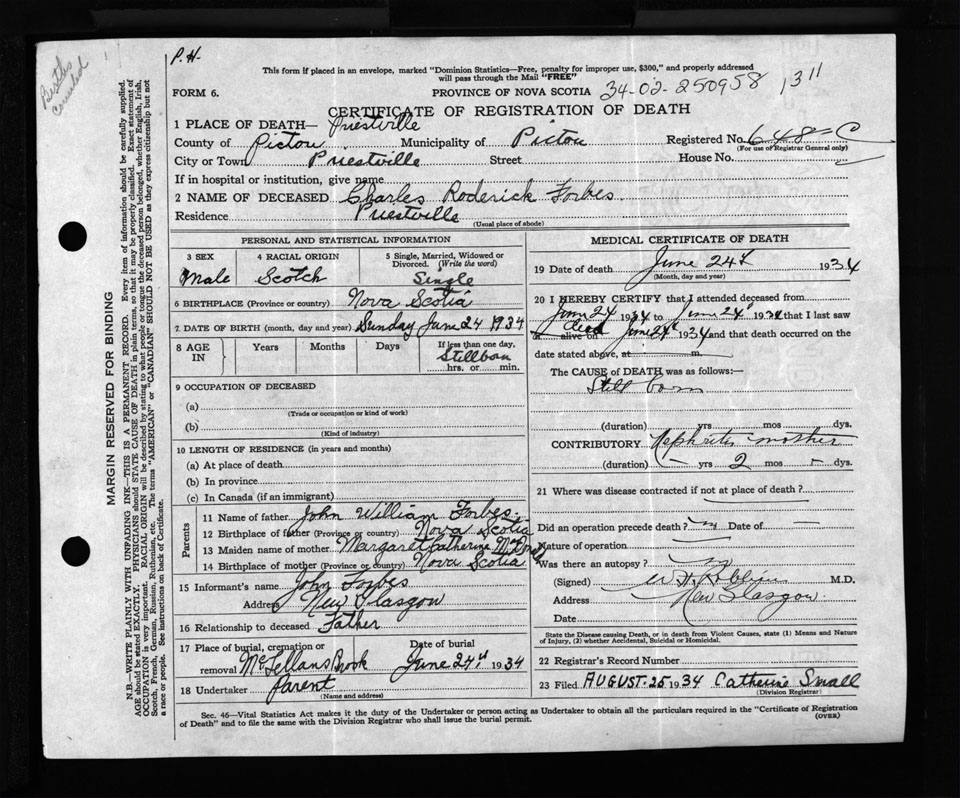 Births Consulted
P.H.
This form if placed in an envelope, marked "Dominion Statistics—Free, penalty for improper use, $300," and properly addressed
will pass through the Mail "FREE"
FORM 6. PROVINCE OF NOVA SCOTIA 34-02-250958
CERTIFICATE OF REGISTRATION OF DEATH
1 PLACE OF DEATH— Priestville
County of Pictou Municipality of Pictou Registered No. 648-C
(For use of Registrar General only)
City or Town Priestville Street House No.
If in hospital or institution, give name
2 NAME OF DECEASED Charles Roderick Forbes
Residence Priestville
(Usual place of abode)
PERSONAL AND STATISTICAL INFORMATION
3 SEX 4 RACIAL ORIGIN 5 Single, Married, Widowed or
Divorced. (Write the word)
Male Scotch Single
6 BIRTHPLACE (Province or country) Nova Scotia
7. DATE OF BIRTH (month, day and year) Sunday June 24 1934
8 AGE IN Years Months Days If less than one day,
Stillborn
hrs. or min.
9 OCCUPATION OF DECEASED
(a)
(Trade or occupation or kind of work)
(b)
(Kind of industry)
10 LENGTH OF RESIDENCE (in years and months)
(a) At place of death
(b) In province
(c) In Canada (if an immigrant)
Parents
11 Name of father John William Forbes
12 Birthplace of father (Province or country) Nova Scotia
13 Maiden name of mother Margaret Catherine
14 Birthplace of mother (Province or country) Nova Scotia
15 Informant's name John Forbes
Address New Glasgow
16 Relationship to deceased Father
17 Place of burial, cremation or Date of burial
removal McLellans Brook June 24th 1934
18 Undertaker Parent
(Name and address)
MEDICAL CERTIFICATE OF DEATH
19 Date of death June 24th 1934
(Month, day and year)
20 I HEREBY CERTIFY that I attended deceased from
June 24 1934 to June 24th 1934 that I last saw
dead
alive on June 24th 1934 and that death occurred on
date stated above, at m.
The CAUSE of DEATH was as follows:—
Still born
(duration) yrs mos. dys.
CONTRIBUTORY Nephritis mother
(duration) — yrs 2 mos — dys.
21 Where was disease contracted if not at place of death?
Did an operation precede death? Date of —
Nature of operation
Was there an autopsy?
(Signed) M.D.
Address New Glasgow
Date
State the Disease causing Death, or in death from Violent Causes, state (1) Means and Nature
of Injury, (2) whether Accidental, Suicidal or Homicidal.
22 Registrar's Record Number
23 Filed AUGUST 25 1934 Catherine Small
(Division Registrar)
Sec. 46—Vital Statistics Act makes it the duty of the Undertaker or person acting as Undertaker to obtain all the particulars required in the "Certificate of Registration
of Death" and to file the same with the Division Registrar who shall issue the burial permit. (OVER)
MARGIN RESERVED FOR BINDING
N.B.—WRITE PLAINLY WITH UNFADING INK—THIS IS A PERMANENT RECORD. Every item of information should be carefully supplied.
AGE should be stated EXACTLY. PHYSICIANS should STATE CAUSE OF DEATH in plain terms, so that it may be properly classified. Exact statement of
OCCUPATION is very important. RACIAL ORIGIN will be described by stating to what people or tongue the deceased person belonged, whether English, Irish,
Scotch, French, German, Russian, Ruthenian, etc. The terms "AMERICAN" or "CANADIAN" SHOULD NOT BE USED as they express citizenship but not
a race or people. See instructions on back of Certificate.